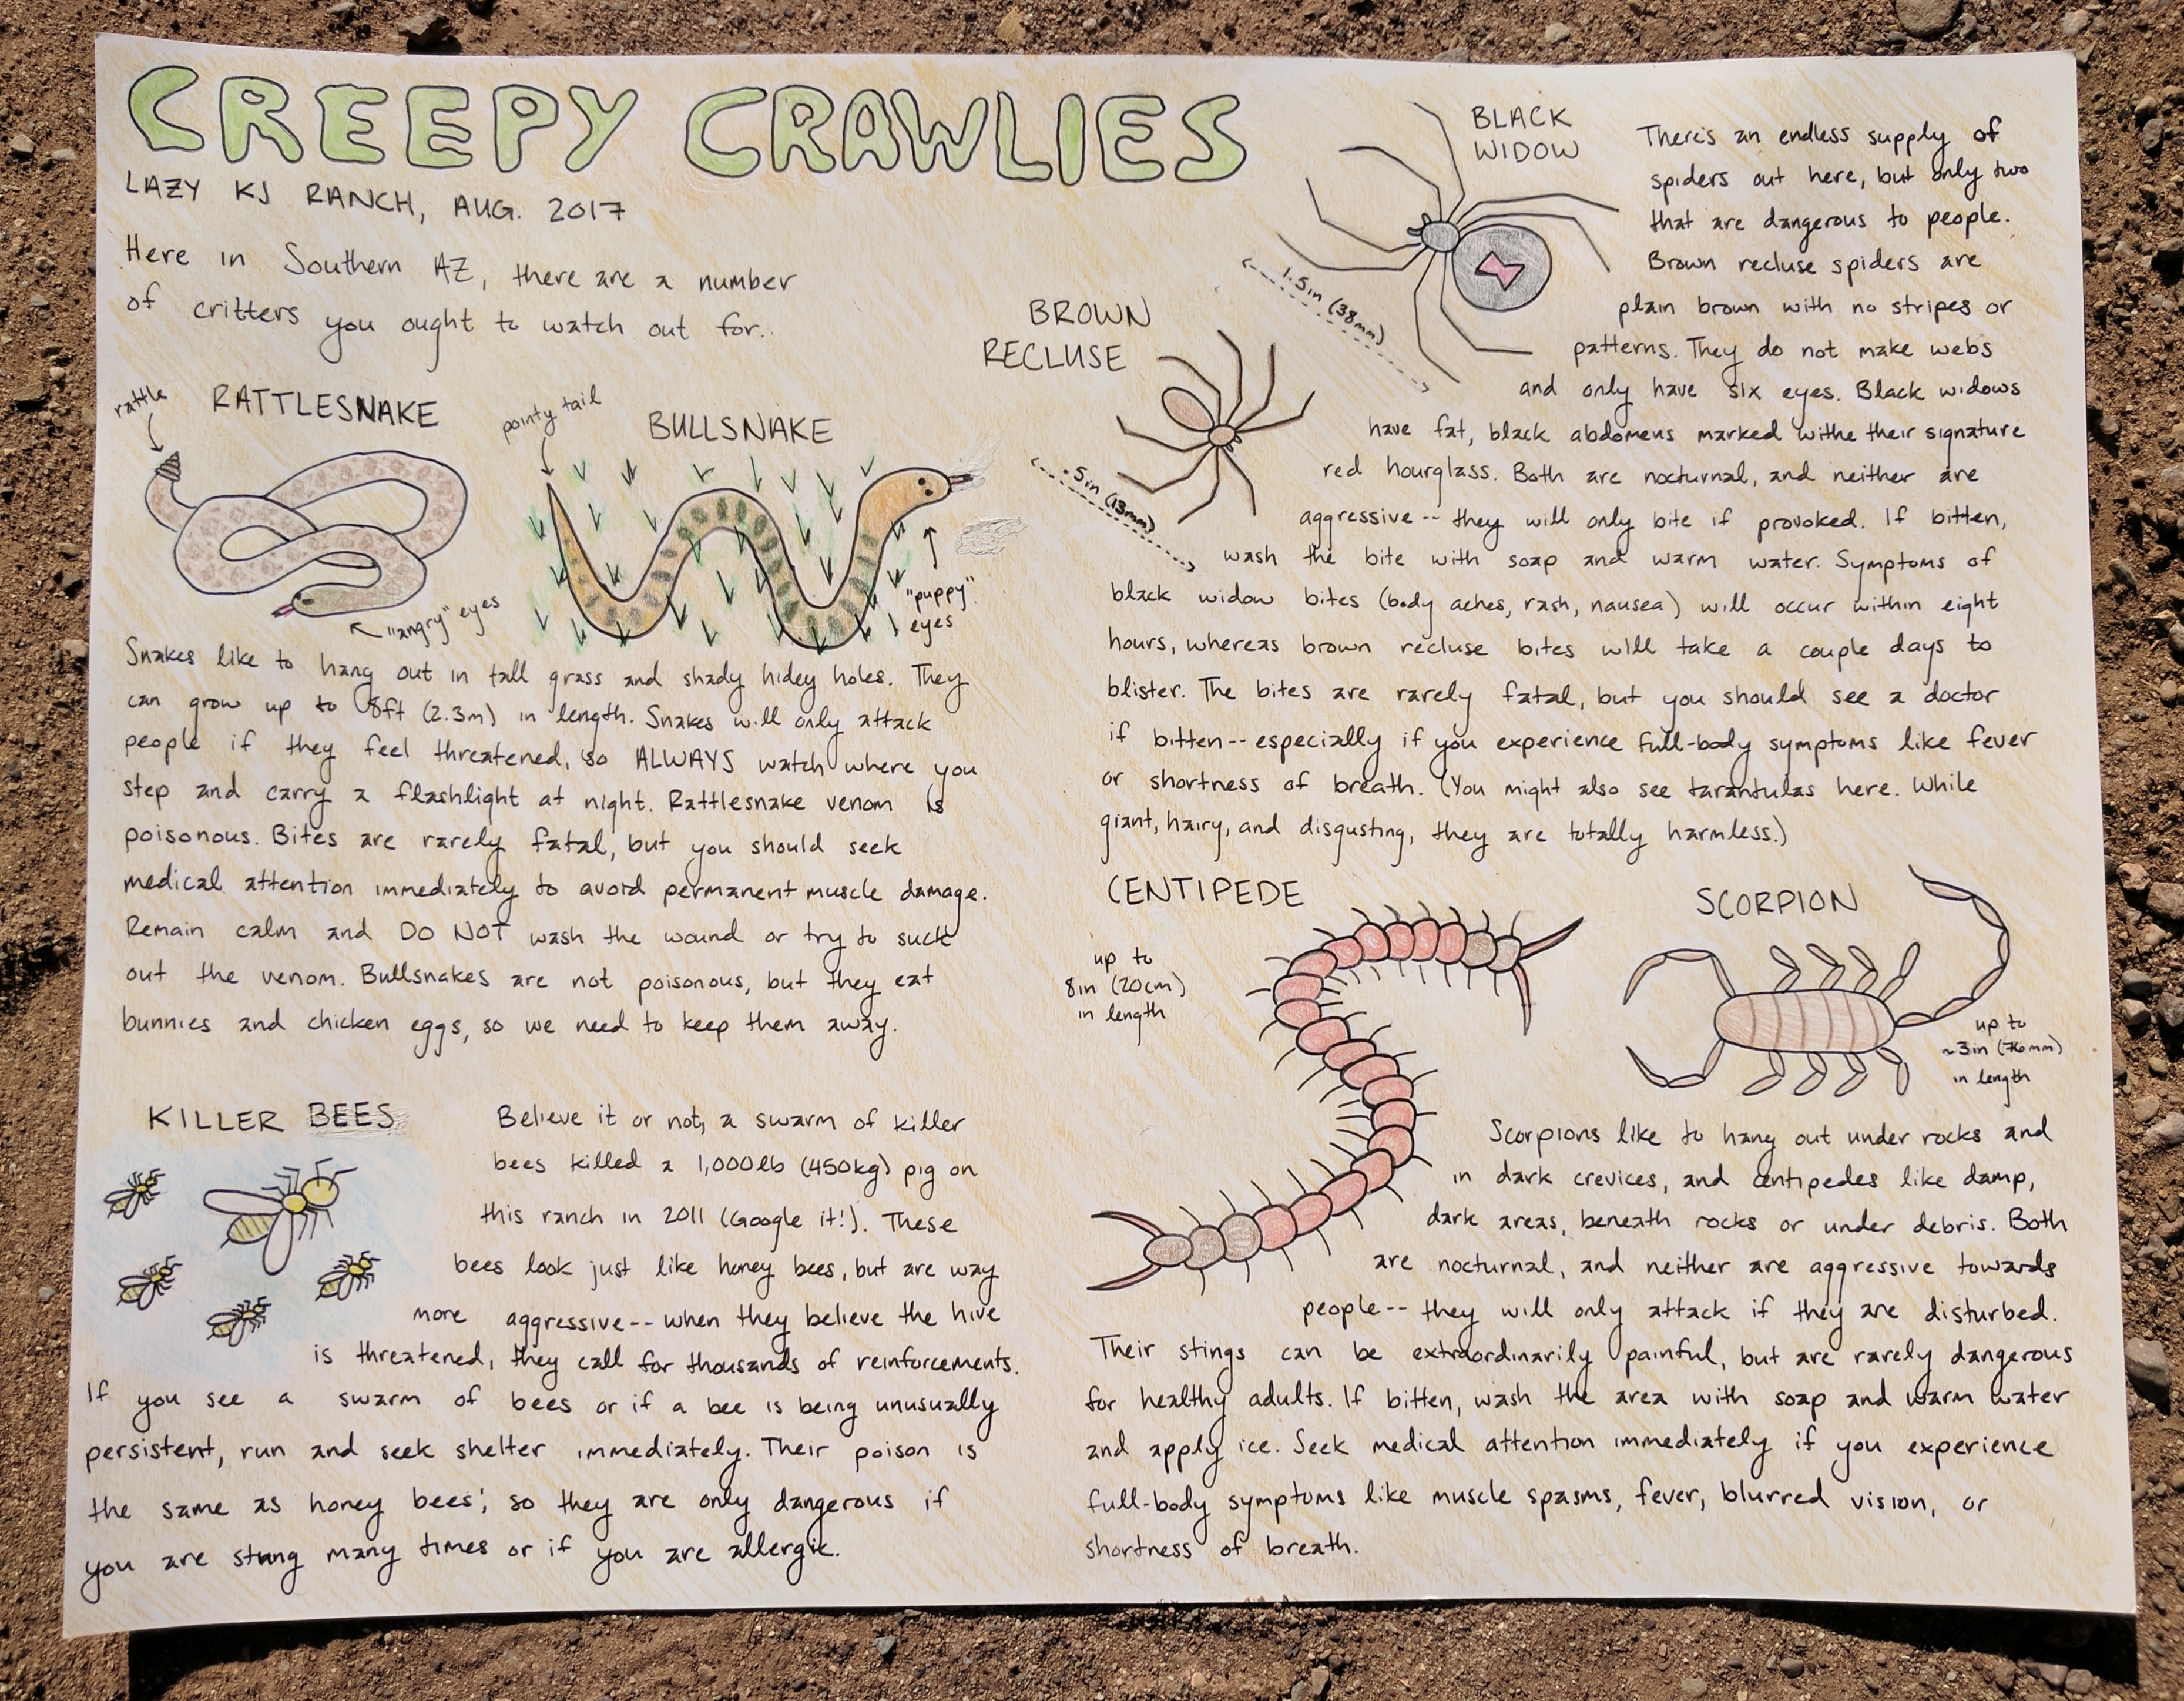 CREEPY CRAWLIES
LAZY KJ RANCH, AUG. 2017
Here in Southern AZ, there are a number
of critters you ought to watch out for..
rattle
RATTLESNAKE
"angry" eyes
pointy tail
BULLSNAKE
"puppy"
eyes
Snakes like to hang out in tall grass and shady hidey holes. They
can grow up to 8ft (2.3m) in length. Snakes will only attack
people if they feel threatened, so ALWAYS watch where you
step and carry a flashlight at night. Rattlesnake venom is
poisonous. Bites are rarely fatal, but you should seek
medical attention immediately to avoid permanent muscle damage.
Remain calm and DO NOT wash the wound or try to suck
out the venom. Bullsnakes are not poisonous, but they eat
bunnies and chicken eggs, so we need to keep them away.
KILLER BEES
Believe it or not, a swarm of killer
bees killed a 1,000lb (450kg) pig on
this ranch in 2011 (Google it!). These
bees look just like honey bees, but are way
more aggressive-- when they believe the hive
is threatened, they call for thousands of reinforcements.
If you see a swarm of bees or if a bee is being unusually
persistent, run and seek shelter immediately. Their poison is
the same as honey bees', so they are only dangerous if
you are stung many times or if you are allergic.
BLACK
WIDOW
1.5in (38mm)
BROWN
RECLUSE
.5in (13mm)
There's an endless supply of
spiders out here, but only two
that are dangerous to people.
Brown recluse spiders are
plain brown with no stripes or
patterns. They do not make webs
and only have six eyes. Black widows
have fat, black abdomens marked withe their signature
red hourglass. Both are nocturnal, and neither are
aggressive-- they will only bite if provoked. If bitten,
wash the bite with soap and warm water. Symptoms of
black widow bites (body aches, rash, nausea) will occur within eight
hours, whereas brown recluse bites will take a couple days to
blister. The bites are rarely fatal, but you should see a doctor
if bitten-- especially if you experience full-body symptoms like fever
or shortness of breath. (You might also see tarantulas here. While
giant, hairy, and disgusting, they are totally harmless.)
CENTIPEDE
up to
8in (20cm)
in length
SCORPION
up to
~3in (76mm)
in length
Scorpions like to hang out under rocks and
in dark crevices, and centipedes like damp,
dark areas, beneath rocks or under debris. Both
are nocturnal, and neither are aggressive towards
people-- they will only attack if they are disturbed.
Their stings can be extraordinarily painful, but are rarely dangerous
for healthy adults. If bitten, wash the area with soap and warm water
and apply ice. Seek medical attention immediately if you experience
full-body symptoms like muscle spasms, fever, blurred vision, or
shortness of breath.